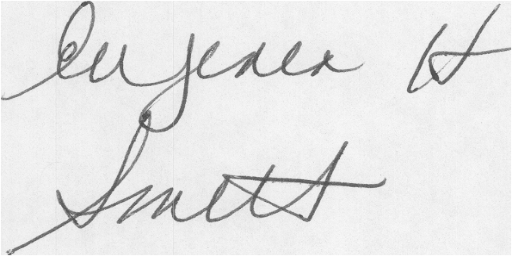 Eugenea H
Smith